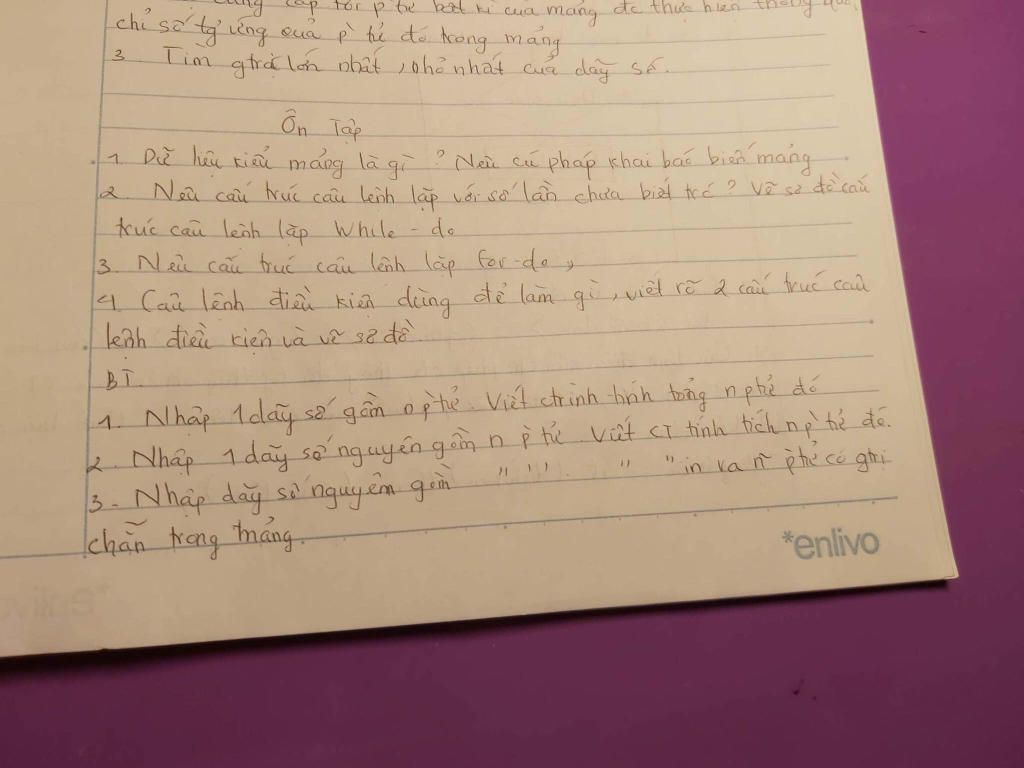 cung cấp tới p tử bất kì của mảng đc thực hiện thông qua
chỉ số tg ứng của p tử đó trong mảng
3 Tìm gtrị lớn nhất, nhỏ nhất của dãy số.
Ôn Tập
1 Dữ liệu kiểu mảng là gì? Nêu cú pháp khai báo biến mảng
2. Nêu cấu trúc câu lệnh lặp với số lần chưa biết trc? Vẽ sơ đồ cấu
trúc câu lệnh lặp While - do
3. Nêu cấu trúc câu lệnh lặp for-do,
4. Câu lệnh điều kiện dùng để làm gì, viết rõ 2 cấu trúc câu
lệnh điều kiện và vẽ sơ đồ
BT.
1. Nhập 1 dãy số gồm n p tử. Viết ctrình tính tổng n ptử đó
2. Nhập 1 dãy số nguyên gồm n p tử. Viết CT tính tích n p tử đó.
3 - Nhập dãy số nguyên gồm " " " " " in ra n~ ptử có gtrị
chẵn trong mảng.
*enlivo